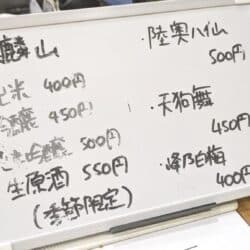 麟山
米 400円
醸 450円
吟醸 500円
生原酒 550円
(季節限定)
・陸奥ハ仙
500円
・天狗舞
450円
・峰乃白梅
400円